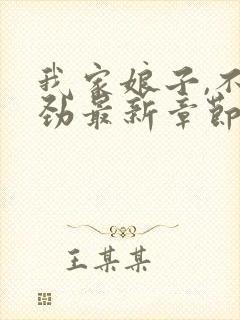 我家娘子,不
劲最新章节
王某某